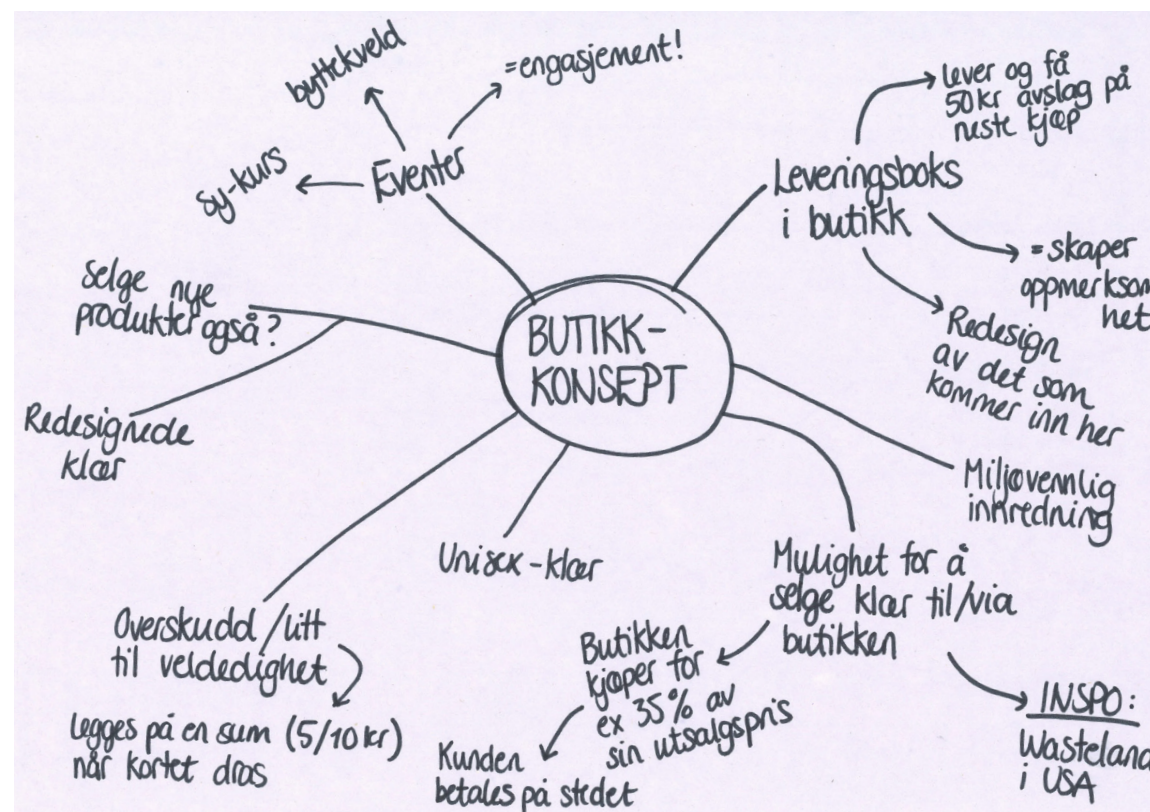 BUTIKK-
KONSEPT
Eventer
byttekveld
= engasjement!
sy-kurs
Leveringsboks
i butikk
Lever og få
50 kr avslag på
neste kjøp
= skaper
oppmerksom
het
Redesign
av det som
kommer inn her
Miljøvennlig
innredning
Mulighet for å
selge klær til/via
butikken
INSPO:
Wasteland
i USA
Butikken
kjøper for
ex 35% av
sin utsalgspris
Kunden
betales på stedet
Unisex-klær
Overskudd/litt
til veldedighet
legges på en sum (5/10 kr)
når kortet dras
Selge nye
produkter også?
Redesignede
klær